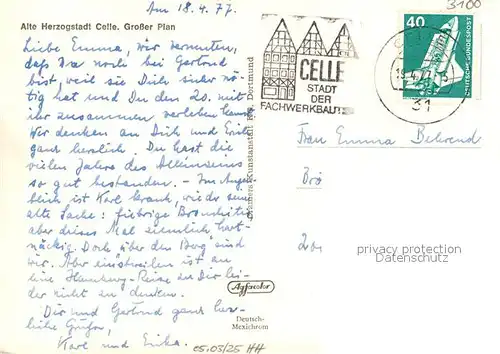 Am 18.4.77.
Alte Herzogstadt Celle. Großer Plan
Liebe Emma, wir vermuten,
daß Du noch bei Gertrud
bist, weil sie Dich sicher nö-
tig hat und Du den 20. mit
ihr zusammen verleben kannst.
Wir denken an Dich und Erich
ganz herzlich. Du hast die
vielen Jahre des Alleinseins
so gut bestanden. – Im Augen-
blick ist Karl krank, wieder seine
alte Sache: fiebrige Bronchitis
aber dieses Mal ziemlich hart-
näckig. Doch über den Berg sind
wir. Aber einstweilen ist an
eine Hamburg-Reise zu Dir lei-
der nicht zu denken.
Dir und Gertrud ganz herz-
liche Grüße,
Karl und Erika.
Cramers Kunstanstalt KG Dortmund
Agfacolor
Deutsch-
Mexichrom
05.03/25 HH
CELLE
STADT
DER
FACHWERKBAUTEN
3100
40
DEUTSCHE BUNDESPOST
CELLE
18.4.77
31
Frau Emma Behrend
privacy protection